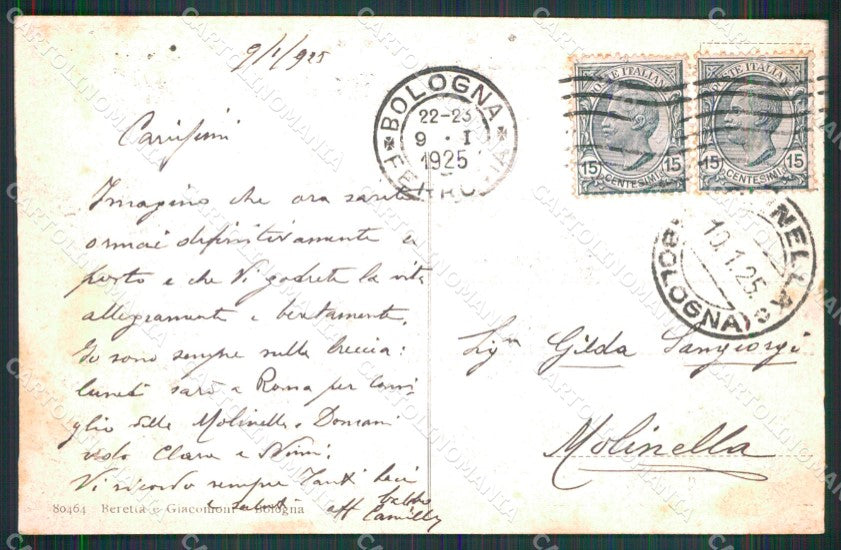 9/1/925
Carissimi
Imagino che ora sarete
ormai definitivamente a
posto e che Vi godrete la vita
allegramente e beatamente.
Io sono sempre sulla breccia:
lunedì sarò a Roma per
delle Molinella. Domani
vedo Clara e Mimì.
Vi ricordo sempre Tanti baci
e saluti
aff
80464 Beretta e Giacomoni - Bologna
BOLOGNA
22-23
9 · I
1925
FERROVIA
POSTE ITALIANE
15 15
CENTESIMI
POSTE ITALIANE
15 15
CENTESIMI
MOLINELLA
10.1.25.
(BOLOGNA)
Sig.na Gilda Sangiorgi
Molinella
CARTOLINOMANIA